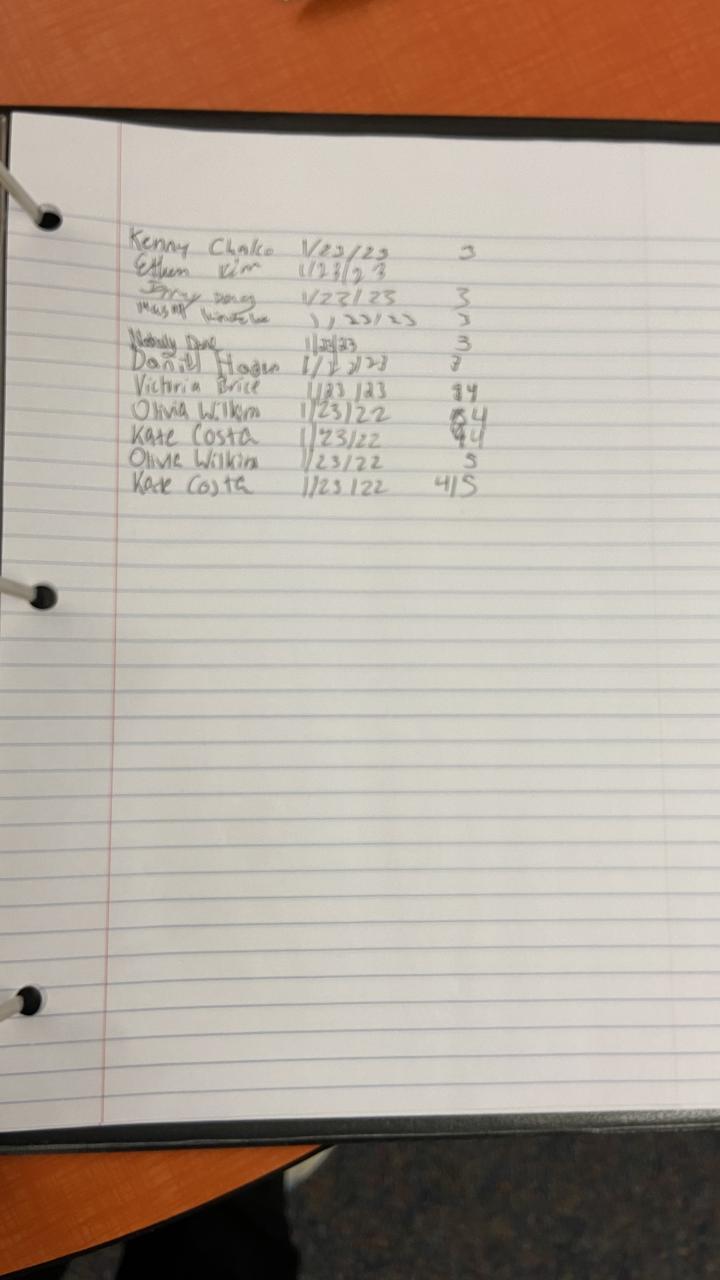 Kenny Chalko 1/23/23 3
Ethan Kim 1/23/23
1/23/23 3
1/23/23 3
1/23/23 3
Daniel Hogan 3
Victoria Brice 1/23/23 4
Olivia Wilkins 1/23/22 4
Kate Costa 1/23/22 4
Olivia Wilkins 1/23/22 5
Kate Costa 1/23/22 4/5